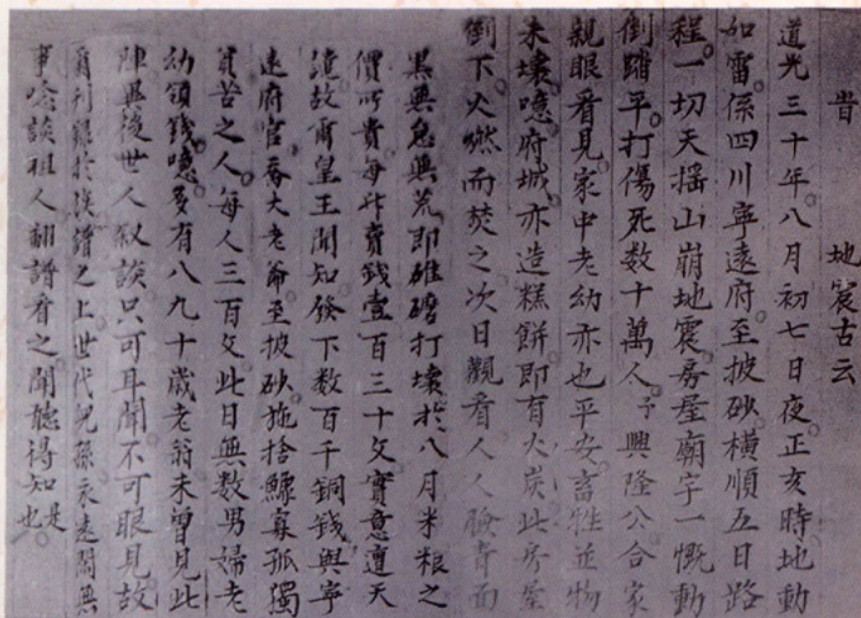 昔　地震古云
道光三十年八月初七日夜正亥時地動
如雷係四川寧遠府至披砂橫順五日路
程一切天摇山崩地震房屋廟宇一慨動
倒踏平打傷死数十萬人予興隆公合家
親眼看見家中老幼亦也平安畜牲並物
未壞噫府城亦造糕餅即有火炭此房屋
倒下火燃而焚之次日觀看人人臉青面
黑無急無荒即碓磨打壞於八月米粮之
價可貴每升賣錢壹百三十文實意遭天
譴故爾皇王聞知發下数百千銅錢與寧
遠府官喬大老爺至披砂拖捨鰥寡孤獨
貧苦之人每人三百文此日無数男婦老
幼領錢噫多有八九十歲老翁未曾見此
陣與後世人叙談只可耳聞不可眼見故
爾刊錄於譜之上世代兒孫永遠閒無
事唸談祖人翻譜看之聞聽得知是也